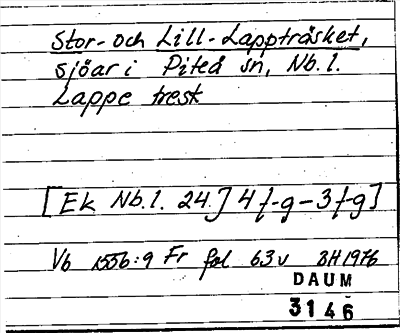 Stor- och Lill-Lappträsket,
sjöar i Piteå sn, Nb. l.
Lappe trest
[Ek Nb. l. 24] 4 f-g-3 f-g]
Vb 1556:9 Fr fol 63 v BH 1976
DAUM
3146